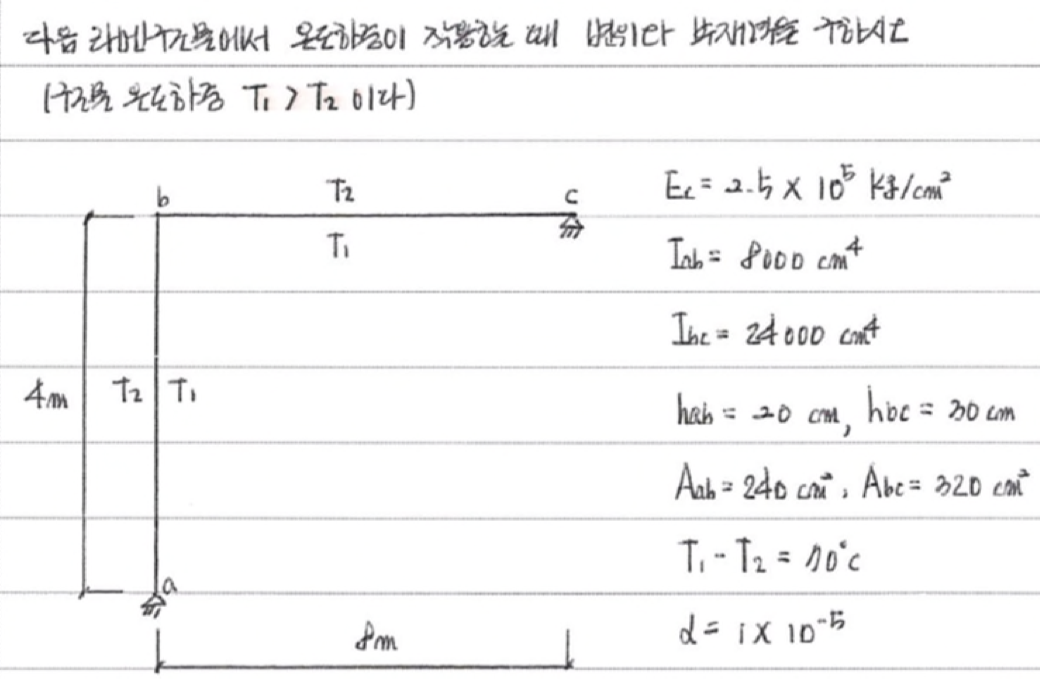 다음 라멘구조물에서 온도하중이 작용하는 때 변위와 부재력을 구하시오
(구조물 온도하중 T₁ > T₂ 이다)
b T₂ c
T₁
4m T₂ T₁
a
8m
Ec = 2.5 × 10⁵ kg/cm²
Iab = 8000 cm⁴
Ibc = 24000 cm⁴
hab = 20 cm, hbc = 30 cm
Aab = 240 cm², Abc = 320 cm²
T₁ - T₂ = 10°c
α = 1 × 10⁻⁵